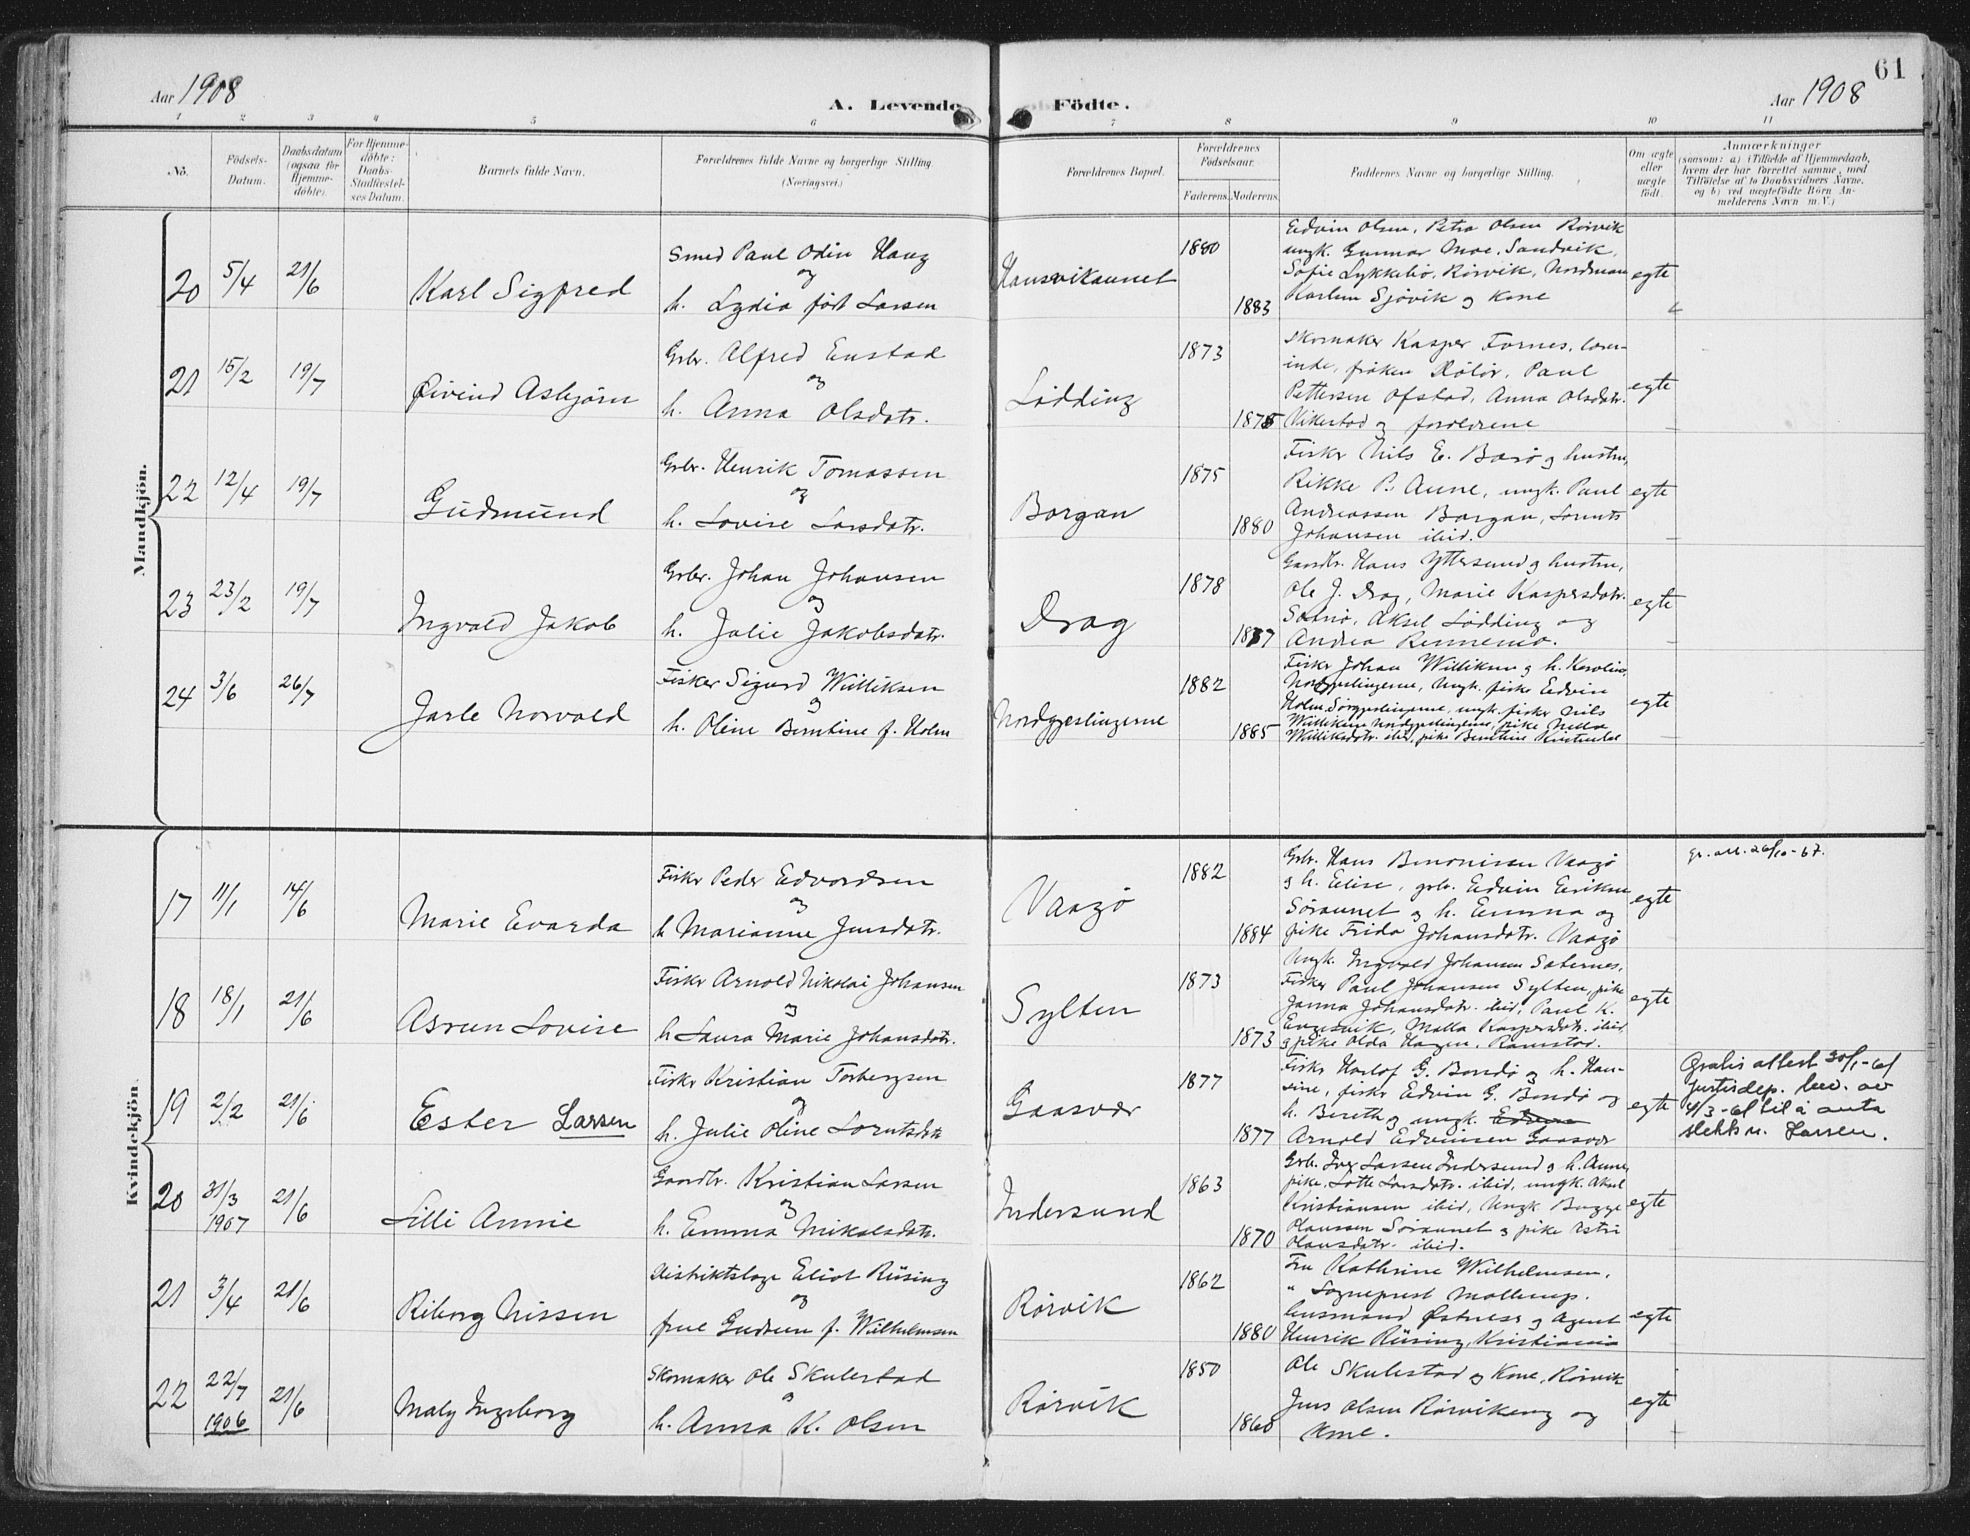 Aar 1908
A. Levende Födte.
Aar 1908
61
1 2 3 4 5 6 7 8 9 10 11
No.
Födsels-
Datum.
Daabsdatum
(ogsaa for
Hjemme-
döbte).
For Hjemme-
döbte:
Daabs-
Stadfæstel-
ses Datum.
Barnets fulde Navn.
Forældrenes fulde Navne og borgerlige Stilling.
(Næringsvei.)
Forældrenes Bopæl.
Forældrenes
Födselsaar.
Faderens.
Moderens.
Faddernes Navne og borgerlige Stilling.
Om ægte
eller
uægte
födt.
Anmærkninger
(saasom: a) i Tilfælde af Hjemmedaab,
hvem der har forrettet samme, med
Tilföielse af to Daabsvidners Navne,
og b) ved uægtefödte Börn An-
melderens Navn m. V.)
Mandkjön.
20 5/4 21/6
Karl Sigfred
Smed Paul Odin Haug
og
h. Lydia föd Larsen
Hansvikaunet
1880
1883
Edvin Olsen, Petra Olsen Rörvik
ungk. Gunnar Moe, Sandvik,
Sofie Lykkebö, Rörvik, Nordman
Karlum Sjövik og Kone
egte
21 15/2 19/7
Øivind Asbjørn
Grbr. Alfred Enstad
og
h. Anna Olsdatr.
Lödding
1873
1875
Skomaker Kasper Fornes, lærer-
inde, fröken Rölör, Paul
Pettersen Ofstad, Anna Olsdatr.
Vikestad og forældrene
egte
22 12/4 19/7
Gudmund
Grbr. Henrik Tomassen
og
h. Lovise Larsdatr.
Borgan
1875
1880
Fisker Nils E. Barö og hustru,
Rikke P. Aune, ungk. Paul
Andreassen Borgan, Lornts
Johansen ibid.
egte
23 23/2 19/7
Ingvald Jakob
Grbr. Johan Johansen
og
h. Julie Jakobsdatr.
Drag
1878
1877
Gaardbr. Hans Yttersund og hustru,
Ole J. Drag, Marie Kaspersdatr.
Sætnö, Aksel Lödding og
Andrea Rennemo.
egte
24 3/6 26/7
Jarle Norvald
Fisker Sigurd Williksen
og
h. Oline Berntine f. Holm
Nordgjæslingerne
1882
1885
Fisker Johan Williksen og h. Karoline
Nordgjæslingerne, Ungk. fisker Edvin
Holm, Sörgjæslingerne, ungk. fisker Nils
Williksen Nordgjæslingerne, pike Nella
Williksdatr. ibid, pike Berntine
egte
Kvindekjön.
17 11/1 14/6
Marie Evarda
Fisker Peder Edvardsen
og
h Marianne Jensdatr.
Vaagö
1882
1884
Grbr. Hans Benonisen Vaagö
og h. Elise, grbr. Edvin Eriksen
Söraunet og h. Emma og
pike Frida Johansdatr. Vaagö
egte
gr. att. 26/10-67.
18 18/1 21/6
Asrun Lovise
Fisker Arnold Nikolai Johansen
og
h Laura Marie Johansdatr.
Sylten
1873
1873
Ungk. Ingvald Johansen Sæternes,
Fisker Paul Johansen Sylten, pike
Janna Johansdatr. ibid, Paul K.
Engesvik, Malla Kaspersdatr. ibid,
og pike Olda Hagen, Ramstad.
egte
19 2/2 21/6
Ester Larsen
Fisker Kristian Torbergsen
og
h. Julie Oline Lorntsdatr
Gaasvær
1877
1877
Fisker Harlof G. Bondö og h. Han-
sine, fisker Edvin G. Bondö og
h. Bereth og ungk. Edvin
Arnold Edvinsen Gaasvær
egte
Gratis attest 30/1-61
Justisdep. bev. av
4/3-61 til å anta
slektsn. Larsen.
20 31/3 1907 21/6
Lilli Annie
Gaardbr. Kristian Larsen
og
h. Emma Mikalsdatr.
Indersund
1863
1870
Grbr. Iver Larsen Indersund og h. Anne,
pike, Lotte Larsdatr. ibid, ungk. Aksel
Kristiansen ibid, Ungk. Bugge
Olaussen Söraunet og pike Astri
Olausdatr. ibid.
egte
21 3/4 21/6
Riborg Nissen
Distriktslæge Eliot Rüsing
og
frue Gudrun f. Wilhelmsen
Rørvik
1862
1880
Fru Kathrine Wilhelmsen,
" Sogneprest Mollerup.
Lensmand Østness og Agent
Henrik Rüsing, Kristiania
egte
22 22/7 1906 21/6
Maly Ingeborg
Skomaker Ole Skulestad
og
h. Anna K. Olsen
Rørvik
1850
1860
Ole Skulestad og Kone, Rörvik
Jens Olsen Rörvikeng og
Kone.
egte